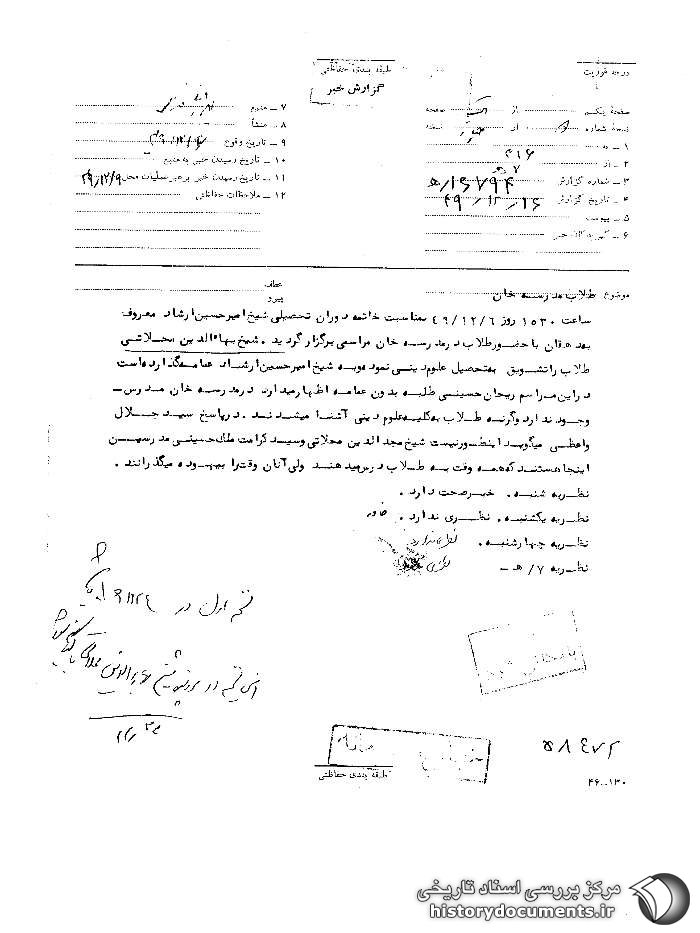 درجه فوریت
طبقه بندی حفاظتی
گزارش خبر
صفحه یکم از صفحه
نسخه شماره از نسخه
۱ ـ به ۳۱۶
۲ ـ از ۷
۳ ـ شماره گزارش ۱۶۷۹۴/ه
۴ ـ تاریخ گزارش ۴۹/۱۲/۱۶
۵ ـ پیوست
۶ ـ گیرندگان خبر
۷ ـ منبع
۸ ـ منشأ
۹ ـ تاریخ وقوع
۱۰ ـ تاریخ رسیدن خبر به منبع
۱۱ ـ تاریخ رسیدن خبر برهبر عملیات محل ۴۹/۱۲/۹
۱۲ ـ ملاحظات حفاظتی
موضوع طلاب مدرسه خان
عطف
پیرو
ساعت ۱۵۳۰ روز ۴۹/۱۲/۶ بمناسبت خاتمه دوران تحصیلی شیخ امیرحسین ارشاد معروف
بدهقان با حضور طلاب درمدرسه خان مراسمی برگزار گردید . شیخ بهاءالدین محلاتی
طلاب را تشویق به تحصیل علوم دینی نموده و به شیخ امیرحسین ارشاد عمامه گذارده است
در این مراسم ریحان حسینی طلبه بدون عمامه اظهار میدارد در مدرسه خان مدرس ـ
وجود ندارد وگرنه طلاب به کلیه علوم دینی آشنا میشدند . درپاسخ سید جلال
واعظی میگوید اینطور نیست شیخ مجدالدین محلاتی وسید کرامت ملک حسینی مدرسین
اینجا هستند که همه وقت به طلاب درس میدهند ولی آنان وقت را بیهوده میگذرانند .
نظریه شنبه . خبر صحت دارد .
نظریه یکشنبه . نظری ندارد . خاور
نظریه چهارشنبه . نظری ندارد
نظریه ۷/ ه ـ
قسم اول در
۵۸۴۷۲
طبقه بندی حفاظتی
۴۶۰۰۱۳۰
مرکز بررسی اسناد تاریخی
historydocuments.ir